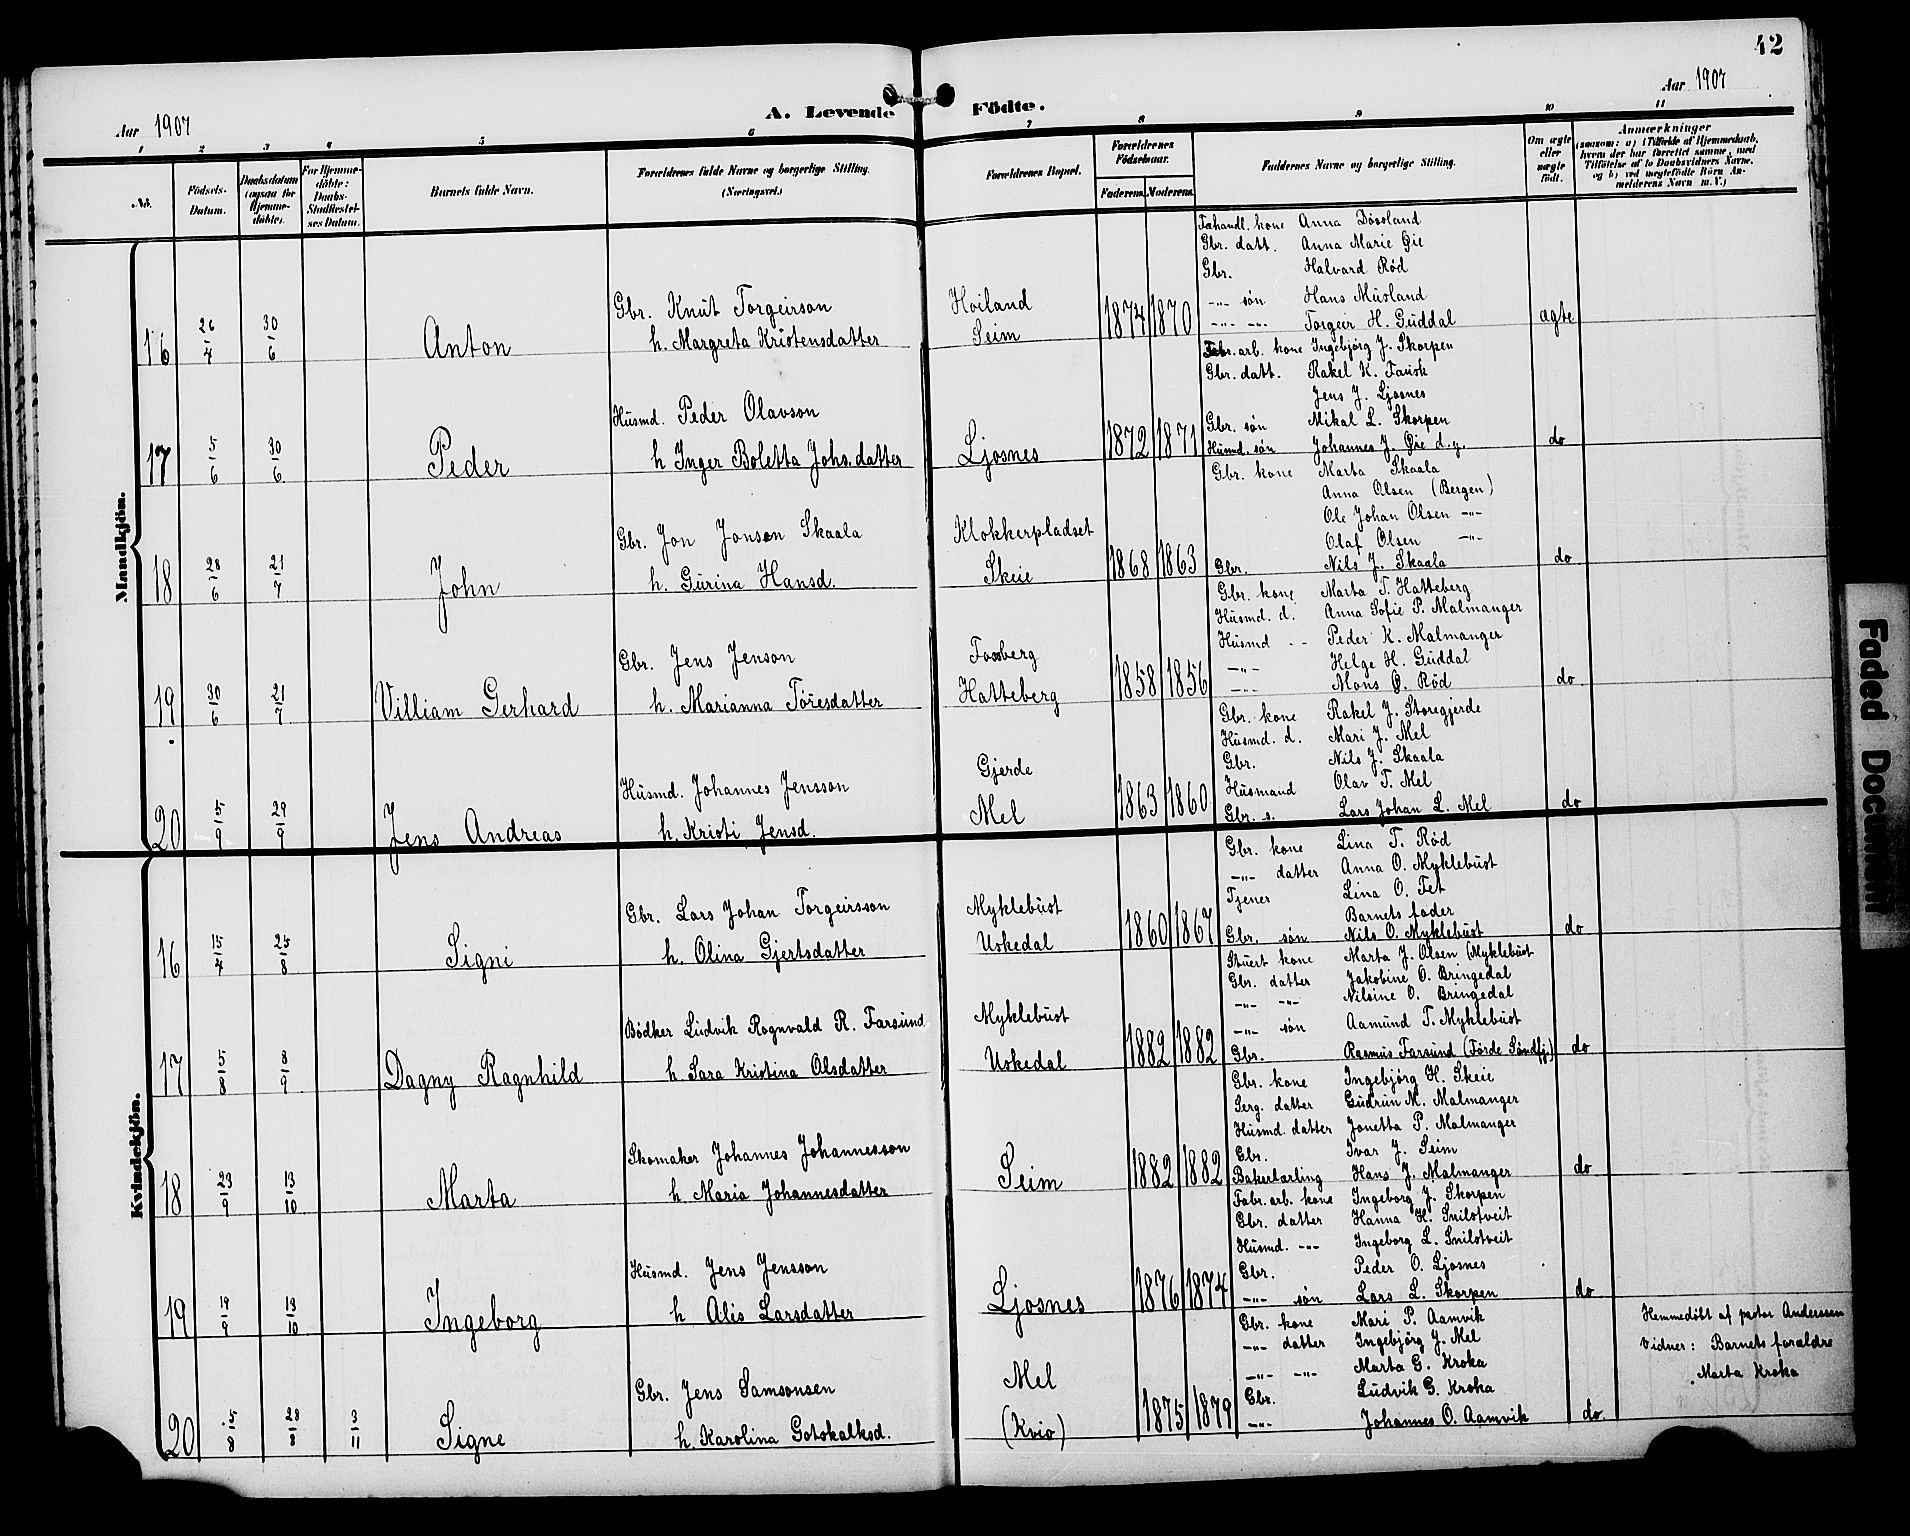 42
Aar 1907
Aar 1907
A. Levende Födte.
1 2 3 4 5 6 7 8 9 10 11
No.
Födsels-Datum.
Daabsdatum (ogsaa for Hjemme-döbte).
For Hjemme-döbte: Daabs-Stadfæstel-ses Datum.
Barnets fulde Navn.
Forældrenes fulde Navne og borgerlige Stilling. (Næringsvei.)
Forældrenes Bopæl.
Forældrenes Födselsaar.
Faderens. Moderens.
Faddernes Navne og borgerlige Stilling.
Om ægte eller uægte födt.
Anmærkninger
(saasom: a) i Tilfælde af Hjemmedaab, hvem der har forrettet samme, med Tilföielse af to Daabsvidners Navne, og b) ved uægtefödte Börn Anmelderens Navn m. V.)
Mandkjön.
16 26/4 30/6 Anton
Gbr. Knut Torgeirson
h. Margreta Kristensdatter
Hoiland
Seim
1874 1870
Anna Dössland
Gbr. datt. Anna Marie Øie
Gbr. Halvard Röd
-"- sön Hans Musland
-"- -"- Torgeir H. Guddal
ægte
17 5/6 30/6 Peder
Husmd. Peder Olavson
h Inger Boletta Johs.datter
Ljosnes
1872 1871
Fabr. arb. kone Ingebjörg J. Skorpen
Gbr. datt. Rakel K. Fausk
Jens J. Ljosnes
Gbr. sön Mikal L. Skorpen
Husmd. sön Johannes J. Øie d.y.
do
18 28/6 21/7 John
Gbr. Jon Jonson Skaala
h. Gurina Hansd.
Klokkerpladset
Skeie
1868 1863
Gbr. kone Marta Skaala
Anna Olsen (Bergen)
Ole Johan Olsen -"-
Olaf Olsen -"-
Gbr. Nils J. Skaala
do
19 30/6 21/7 Villiam Gerhard
Gbr. Jens Jenson
h. Marianna Töresdatter
Fossberg
Hatteberg
1858 1856
Gbr. kone Marta T. Hatteberg
Husmd. d. Anna Sofie P. Malmanger
Husmd -- Peder K. Malmanger
-"- Helge H. Guddal
-"- Mons O. Röd
do
20 5/9 29/9 Jens Andreas
Husmd. Johannes Jensson
h. Kristi Jensd.
Gjerde
Mel
1863 1860
Gbr. kone Rakel J. Storegjerde
Husmd. d. Mari J. Mel
Gbr. Nils J. Skaala
Husmand Olav T. Mel
Gbr. s. Lars Johan L. Mel
do
Kvindekjön.
16 15/4 25/8 Signi
Gbr. Lars Johan Torgeirsson
h. Olina Gjertsdatter
Myklebust
Uskedal
1860 1867
Gbr. kone Lina T. Röd
-"- datter Anna O. Myklebust
Tjener Lina O. Tet
Barnets fader
Gbr. sön Nils O. Myklebust
do
17 5/8 8/9 Dagny Ragnhild
Bödker Ludvik Rognvald R. Farsund
h. Sara Kristina Olsdatter
Myklebust
Uskedal
1882 1882
Stuert kone Marta J. Olsen (Myklebust
Gbr. datter Jakobine O. Bringedal
-"- -"- Nilsine O. Bringedal
-"- sön Aamund T. Myklebust
Gbr. Rasmus Farsund (Förde Söndfj.)
do
18 23/9 13/10 Marta
Skomaker Johannes Johannesson
h. Maria Johannesdatter
Seim
1882 1882
Gbr. kone Ingebjörg H. Skeie
Serg. datter Gudrun M. Malmanger
Husmd. datter Jonetta P. Malmanger
Gbr. Ivar J. Seim
Bakerlærling Hans J. Malmanger
do
19 19/9 13/10 Ingeborg
Husmd. Jens Jensson
h Alis Larsdatter
Ljosnes
1876 1874
Fabr. arb. kone Ingeborg J. Skorpen
Gbr. datter Hanna H. Snilstveit
Husmd. -"- Ingeborg L. Snilstveit
Gbr. Peder O. Ljosnes
-"- sön Lars L. Skorpen
do
20 5/8 28/8 3/11 Signe
Gbr. Jens Samsonsen
h. Karolina Gotskalksd.
Mel
(Kvio)
1875 1879
Gbr. kone Mari P. Aamvik
-"- datter Ingebjörg J. Mel
-"- -"- Marta G. Kroka
Gbr. Ludvik G. Kroka
-"- Johannes O. Aamvik
do.
Hemmedöbt af pastor Anderssen
Vidner: Barnets forældre
Marta Kroka
Faded Document